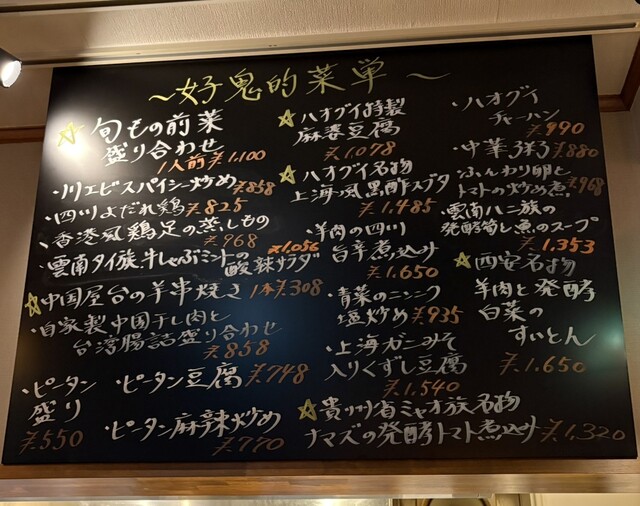 ～好鬼的菜単～
☆旬もの前菜
盛り合わせ
1人前￥1,100
・川エビスパイシー炒め￥858
・四川よだれ鶏￥825
・香港風鶏足の蒸しもの
￥968
・雲南タイ族、牛しゃぶミントの
酸辣サラダ ￥1,056
☆中国屋台の羊串焼き 1本￥308
・自家製中国干し肉と
台湾腸詰盛り合わせ
￥858
・ピータン
盛り
￥550
・ピータン豆腐￥748
・ピータン麻辣炒め
￥770
☆ハオグイ特製
麻婆豆腐
￥1,078
☆ハオグイ名物
上海風黒酢スブタ
￥1,485
・羊肉の四川
旨辛煮込み
￥1,650
・青菜のニンニク
塩炒め￥935
・上海ガニみそ
入りくずし豆腐
￥1,540
☆貴州省ミャオ族名物
ナマズの発酵トマト煮込み￥1,320
・ハオグイ
チャーハン
￥990
・中華3種￥880
・ふんわり卵と
トマトの炒め煮￥968
・雲南ハニ族の
発酵筍と魚のスープ
￥1,353
☆西安名物
羊肉と発酵
白菜の
すいとん
￥1,650